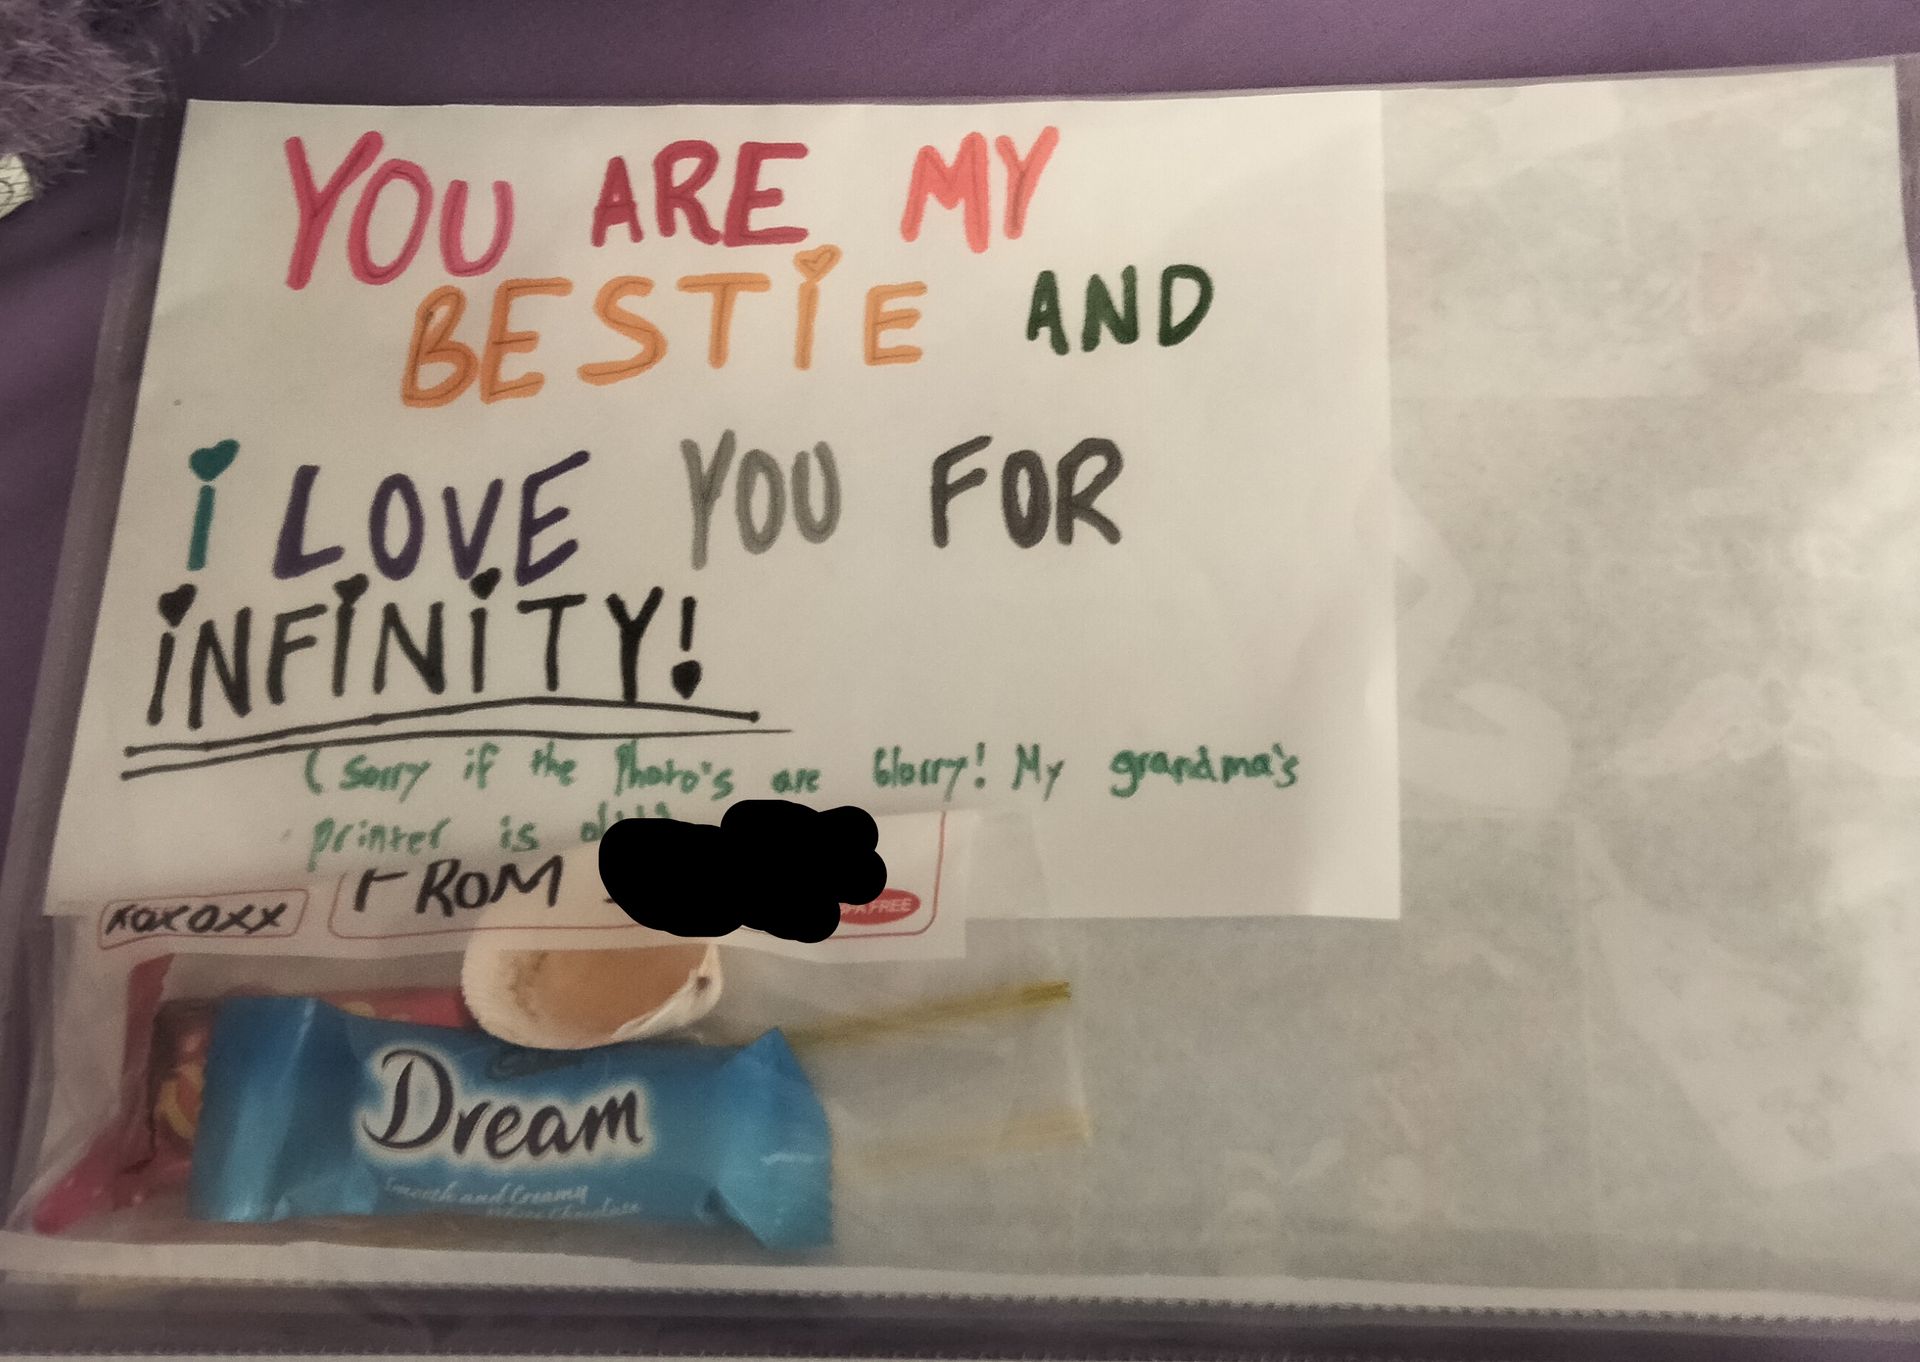 YOU ARE MY
BESTiE AND
i LOVE YOU FOR
iNFiNiTY!
(Sorry if the Photo's are blorry! My grandma's
printer is
FROM
xoxoxx
FREE
Dream
Smooth and Creamy
White Chocolate